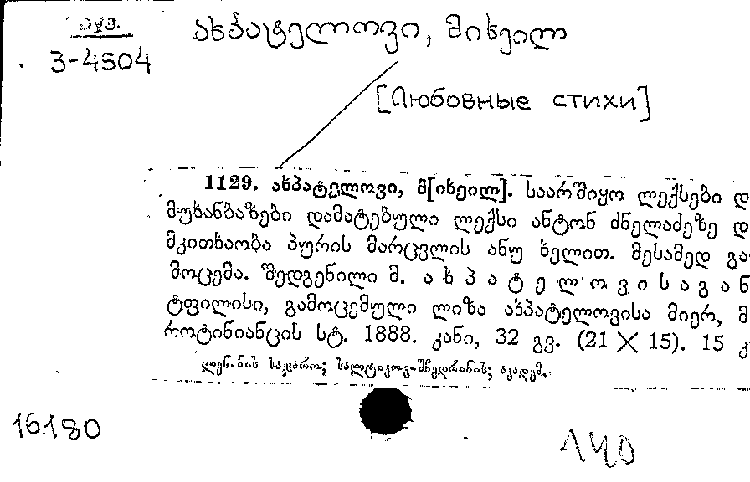 3-4504
ახპატელოვი, მიხეილ
[Любовные стихи]
1129. ახპატელოვი, მ[იხეილ]. საარშიყო ლექსები დ
მუხანბაზები დამატებული ლექსი ანტონ ძნელაძეზე დ
მკითხაობა პურის მარცვლის ანუ ხელით. მესამედ გა
მოცემა. შედგენილი მ. ა ხ პ ა ტ ე ლ ო ვ ი ს ა გ ა ნ
ტფილისი, გამოცემული ლიზა ახპატელოვისა მიერ, მ
როტინიანცის სტ. 1888. კანი, 32 გვ. (21 X 15). 15 კ
ლენ.-ის საჯარო; სალტიკოვ-შჩედრინის; აკადემ.
16180